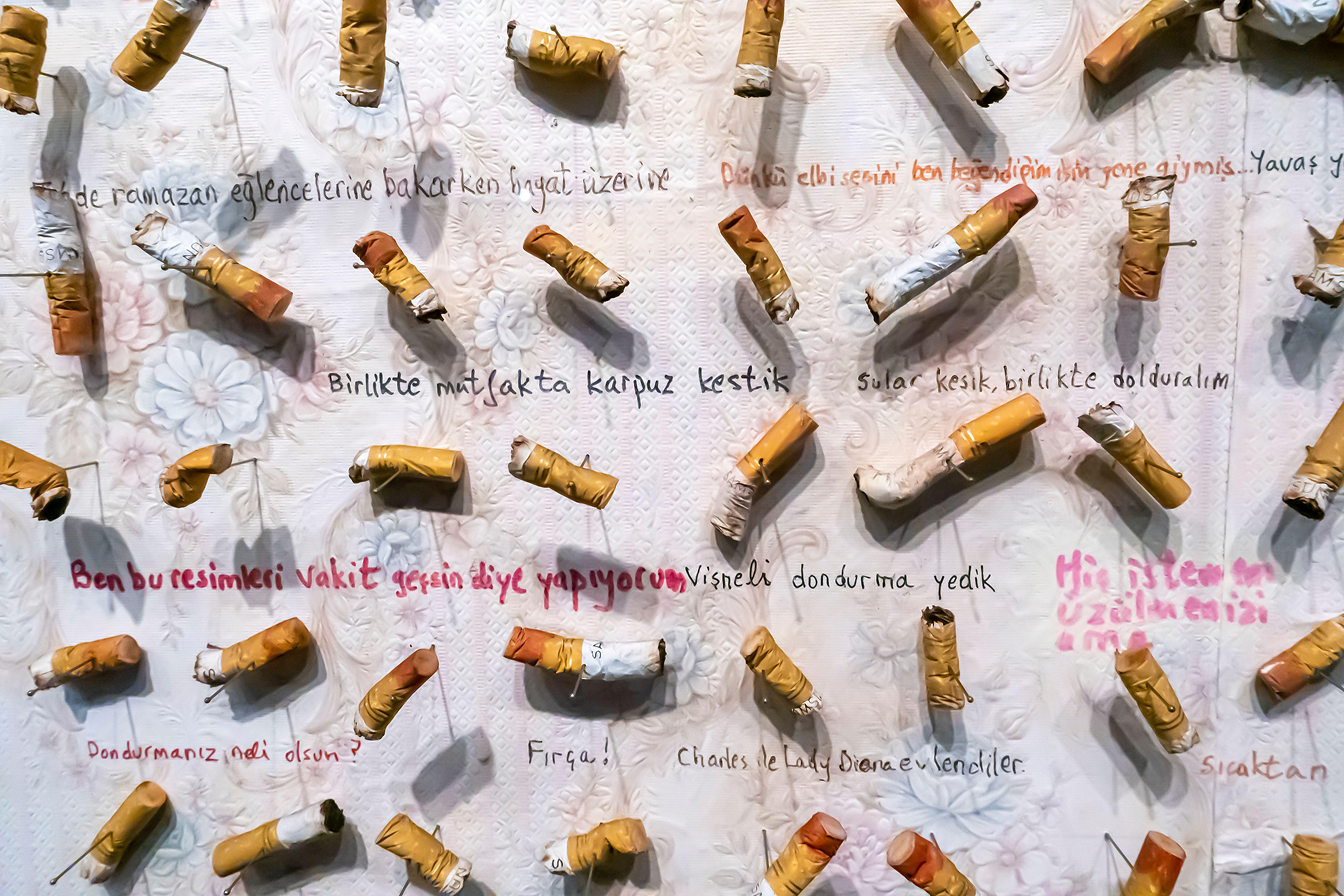 de ramazan eğlencelerine bakarken hayat üzerine
Dünkü elbisesini ben beğendiğim için gene giymiş... Yavaş y
Birlikte mutfakta karpuz kestik
Sular kesik, birlikte dolduralım
Ben bu resimleri vakit geçsin diye yapıyorum
Vişneli dondurma yedik
Hiç istemem
üzülmenizi
ama
Dondurmanız neli olsun?
Fırça!
Charles ile Lady Diana evlendiler.
Sıcaktan